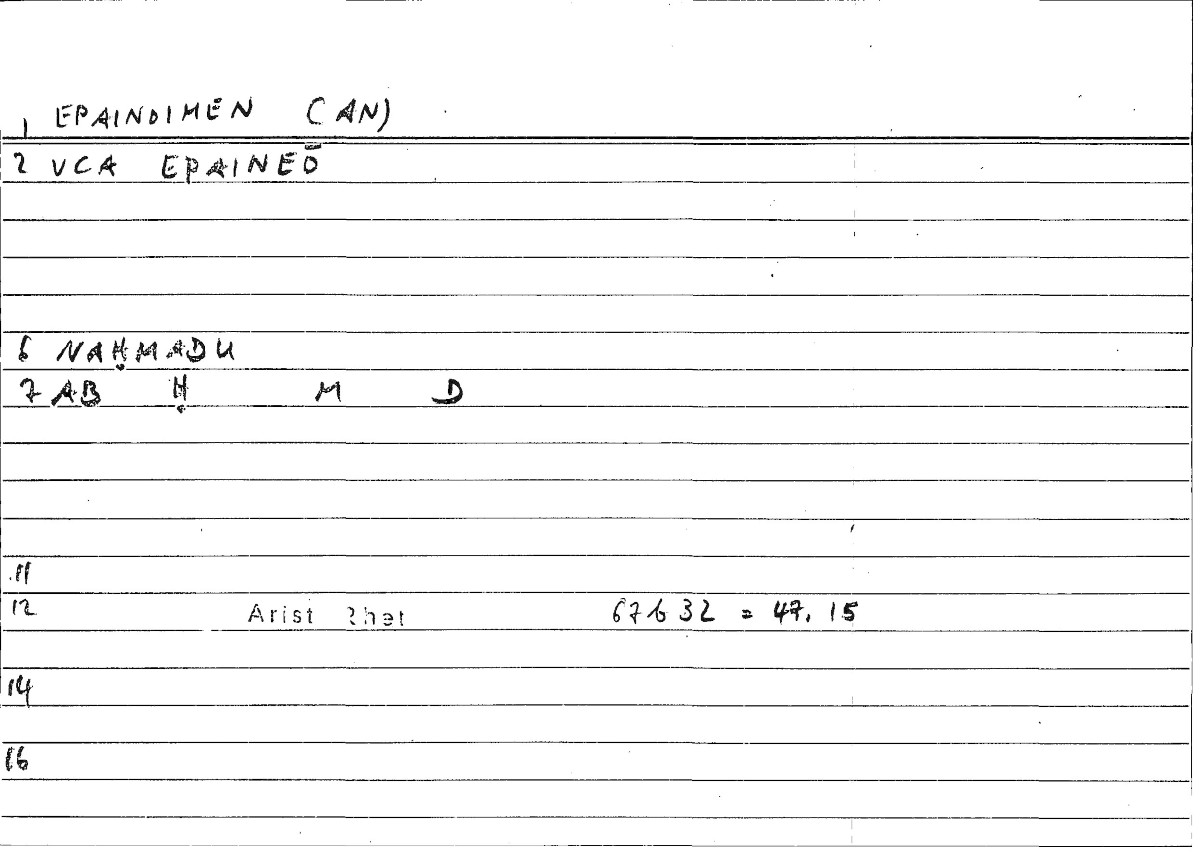 1 EPAINOIMEN (AN)
2 VCA EPAINEŌ
6 NAḤMADU
7 AB Ḥ M D
11
12 Arist Rhet 67b32 = 47.15
14
16